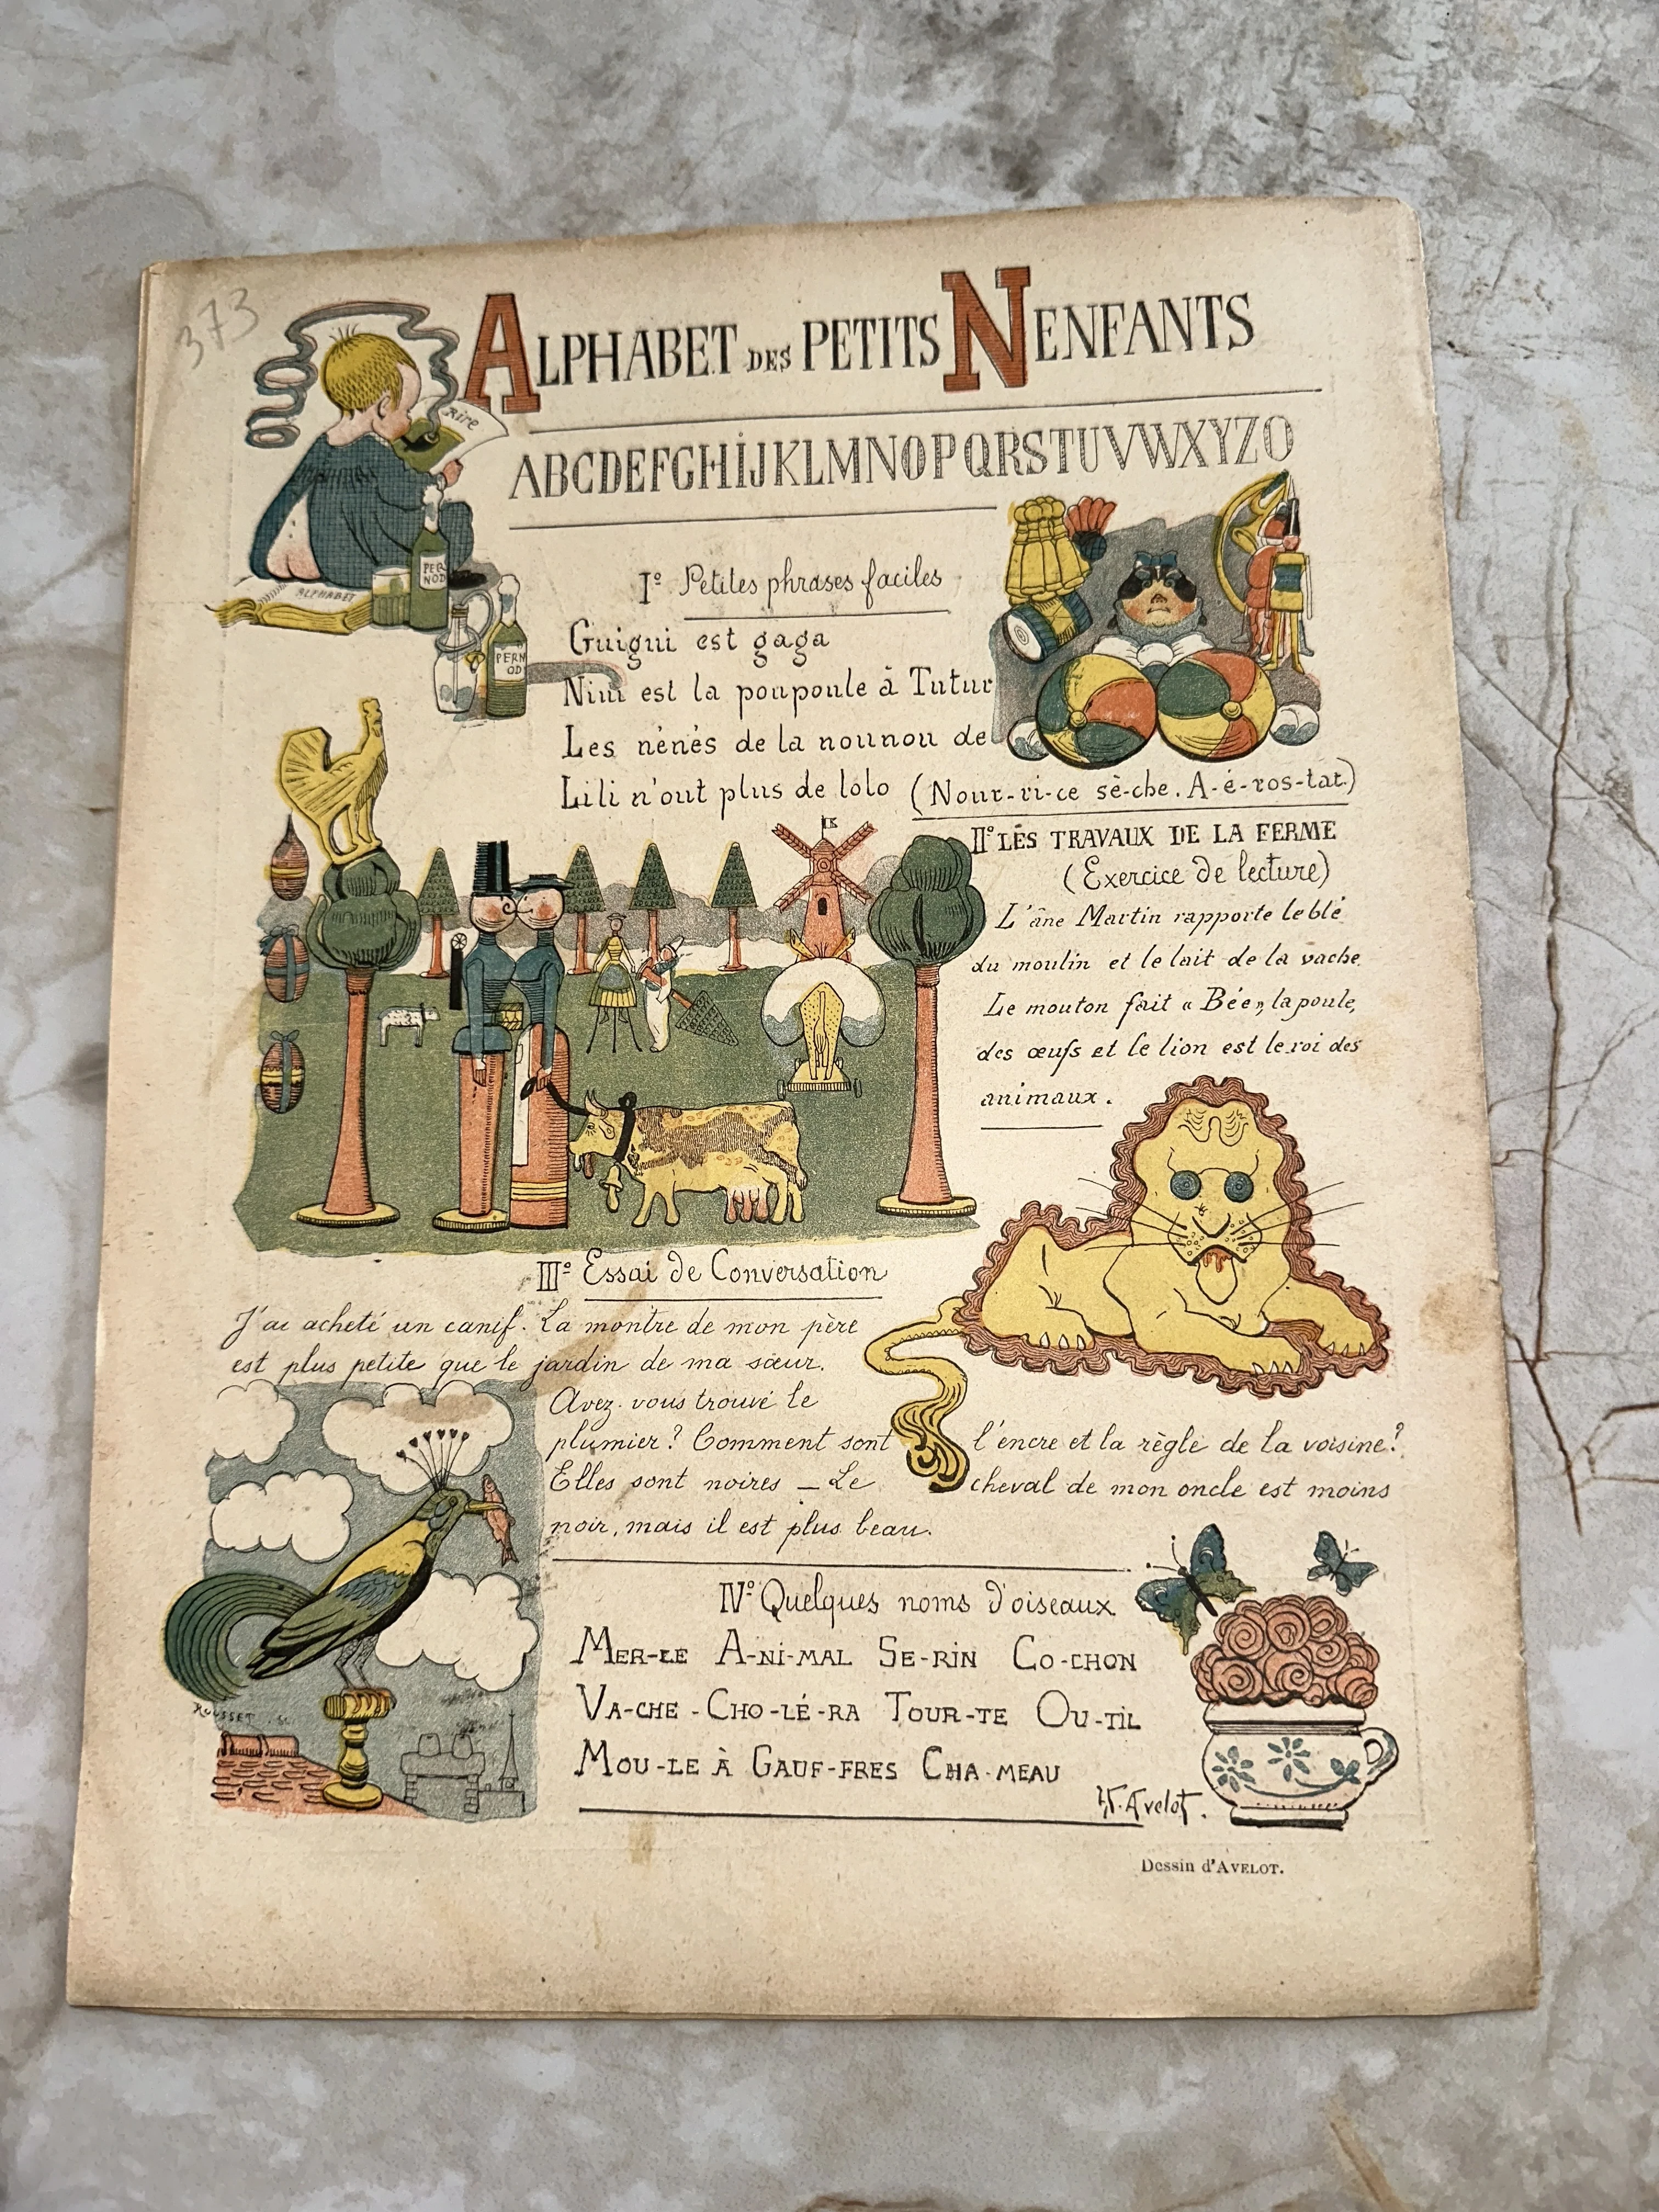 373
ALPHABET DES PETITS NENFANTS
Rire
ABCDEFGHIJKLMNOPQRSTUVWXYZO
PER
NOD
ALPHABET
PERN
OD
I° Petites phrases faciles
Guigui est gaga
Nini est la poupoule à Tutur
Les nénés de la nounou de
Lili n'ont plus de lolo (Nour-ri-ce sè-che. A-é-ros-tat.)
II° LES TRAVAUX DE LA FERME
(Exercice de lecture)
L'âne Martin rapporte le blé
du moulin et le lait de la vache
Le mouton fait « Bée », la poule,
des œufs et le lion est le roi des
animaux.
III° Essai de Conversation
J'ai acheté un canif. La montre de mon père
est plus petite que le jardin de ma sœur.
Avez-vous trouvé le
plumier? Comment sont l'encre et la règle de la voisine?
Elles sont noires _ Le cheval de mon oncle est moins
noir, mais il est plus beau.
IV° Quelques noms d'oiseaux
MER-LE A-NI-MAL SE-RIN CO-CHON
VA-CHE - CHO-LÉ-RA TOUR-TE OU-TIL
MOU-LE À GAUF-FRES CHA-MEAU
ROUSSET. SC
H. Avelot.
Dessin d'AVELOT.